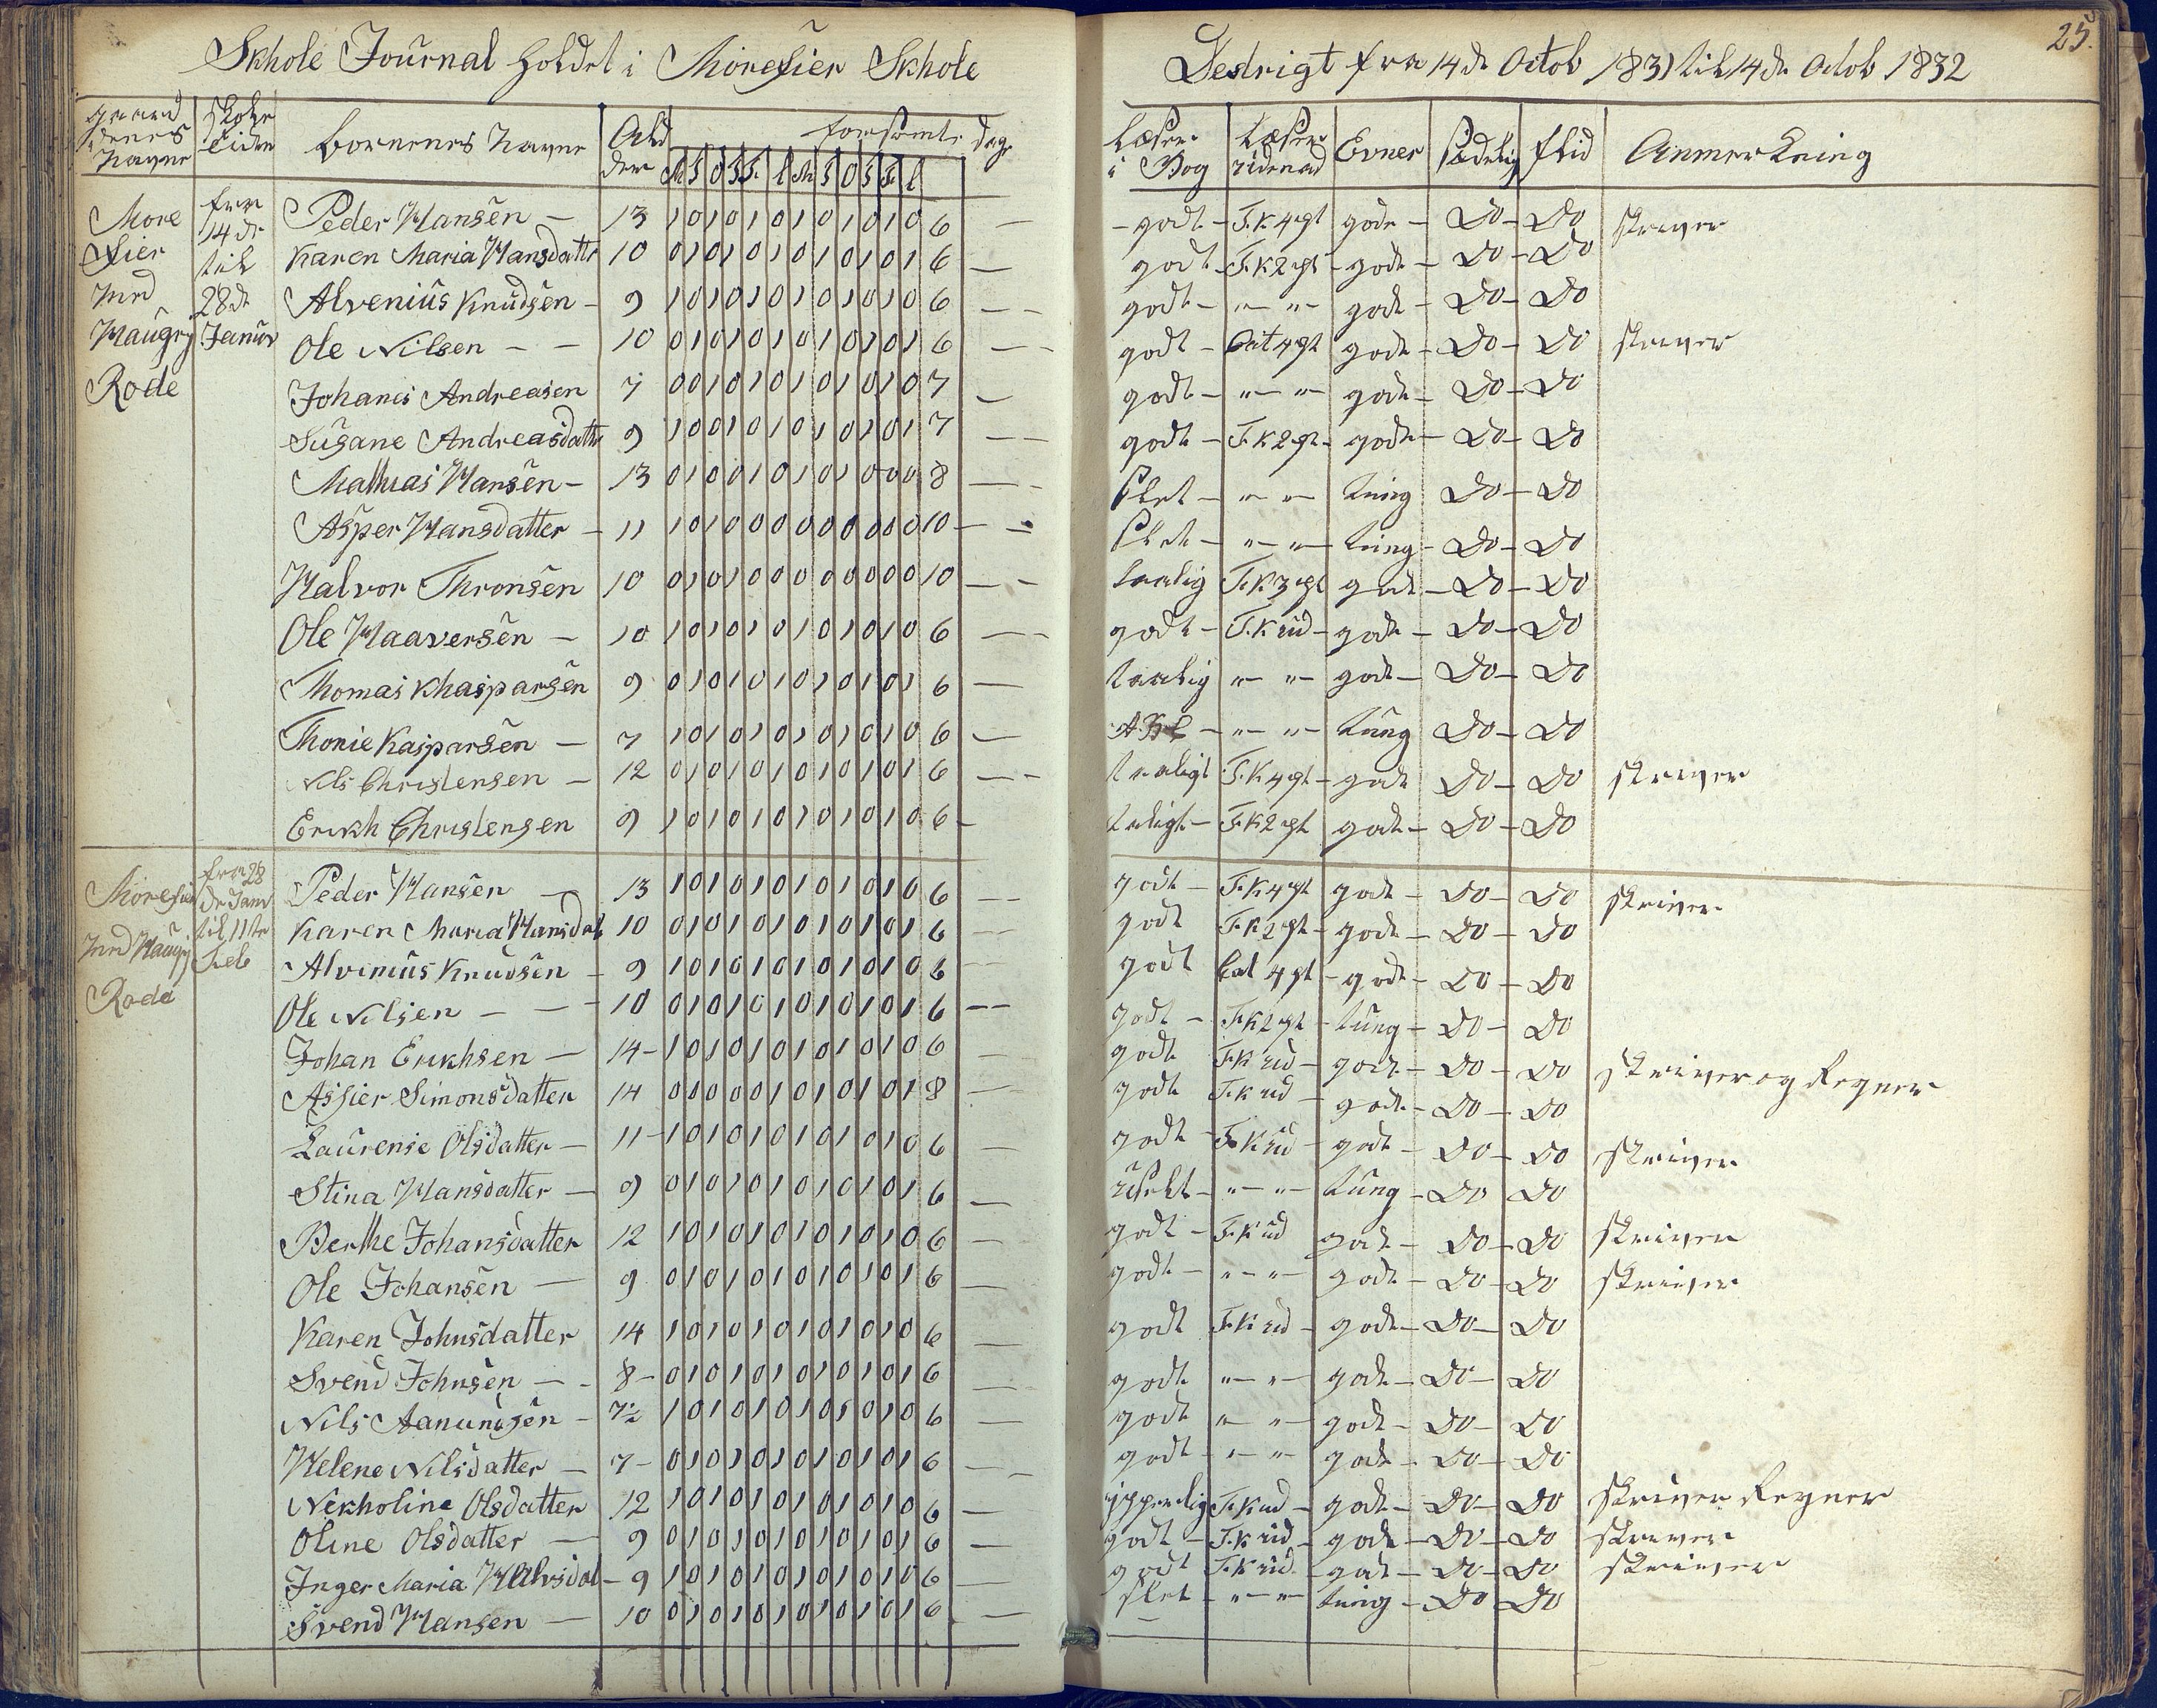 Skhole Journal holdet i Morefier Skhole
Destrigt fra 14de Octob 1831 til 14de Octob 1832
25.
gaardenes Navne Skole tiden Bornenes Navne Alder forsømte dage
M T O T F L M T O T F L
Læser i Bog Læser udenad Evner Sædelig flid Anmerkning
More fra Peder Hansen — 13 1 0 1 0 1 0 1 0 1 0 1 0 6 — godt - F.K 4 pt gode - Do - Do skriver
fier 14de til Karen Maria Hansdatter 10 0 1 0 1 0 1 0 1 0 1 0 1 6 — godt - F.K 2 pt - gode - Do - Do
Med 28de Alvenius Knudsen - 9 1 0 1 0 1 0 1 0 1 0 1 0 6 — godt - " — " gode - Do - Do
Haugej Januar Ole Nilsen — — 10 0 1 0 1 0 1 0 1 0 1 0 1 6 — godt - Cat 4 pt gode - Do - Do skriver
Rode Johanes Andreasen 7 0 0 1 0 1 0 1 0 1 0 1 0 7 — godt - " — " gode - Do - Do
Susane Andreasdatter 9 1 0 0 1 0 1 0 1 0 1 0 1 7 — godt - F.K 2 pt - gode - Do - Do
Mathias Hansen - 13 0 1 0 0 1 0 1 0 1 0 0 0 8 — Slet - " — " tung Do - Do
Asper Hansdatter - 11 1 0 1 0 0 0 0 0 0 0 0 0 10 — Slet - " — " tung - Do - Do
Halvor Thronsen 10 0 1 0 1 0 0 0 0 0 0 0 0 10 — taalig F.K 3 pt gode - Do - Do
Ole Haaversen — 10 1 0 1 0 1 0 1 0 1 0 1 0 6 — godt - F.K ud - gode - Do - Do
Thomas Khasparsen 9 0 1 0 1 0 1 0 1 0 1 0 1 6 — taalig " — " gode - Do - Do
Thonie Kasparsen — 7 1 0 1 0 1 0 1 0 1 0 1 0 6 — ABC - " — " tung Do - Do
Nils Christensen — 12 0 1 0 1 0 1 0 1 0 1 0 1 6 — taaligt F.K 4 pt - gode Do - Do skriver
Erikh Christensen 9 1 0 1 0 1 0 1 0 1 0 1 0 6 — taligt - F.K 2 pt gode - Do - Do
Morefier fra 28 de Janr Peder Hansen — 13 1 0 1 0 1 0 1 0 1 0 1 0 6 — godt - F.K 4 pt gode - Do - Do skriver
til 11te Karen Maria Hansdat 10 0 1 0 1 0 1 0 1 0 1 0 1 6 — godt F.K 2 pt - gode - Do - Do
Med Haugej Feb Alvinius Knudsen - 9 1 0 1 0 1 0 1 0 1 0 1 0 6 — godt Cat 4 pt - gode - Do - Do
Rode Ole Nilsen — — 10 0 1 0 1 0 1 0 1 0 1 0 1 6 — godt - F.K 2 pt - tung - Do - Do
Johan Erikhsen — 14 - 1 0 1 0 1 0 1 0 1 0 1 0 6 — godt F.K ud - gode - Do - Do skriver og Regner
Assier Simonsdatter 14 0 0 0 0 0 1 0 1 0 1 0 1 8 — godt F.K ud - gode - Do - Do
Laurense Olsdatter — 11 - 1 0 1 0 1 0 1 0 1 0 1 0 6 — godt - F.K ud - gode - Do - Do skriver
Stina Hansdatter — 9 0 1 0 1 0 1 0 1 0 1 0 1 6 — " — " tung - Do Do
Berthe Johansdatter 12 1 0 1 0 1 0 1 0 1 0 1 0 6 — godt - F.K ud gode - Do - Do skriver
Ole Johansen — 9 0 1 0 1 0 1 0 1 0 1 0 1 6 — godt - " — " gode - Do - Do skriver
Karen Johnsdatter 14 1 0 1 0 1 0 1 0 1 0 1 0 6 — godt F.K ud - gode - Do - Do
Svend Johnsen — 8 - 0 1 0 1 0 1 0 1 0 1 0 1 6 — godt " — " gode - Do - Do
Nils Aanundsen - 7½ 1 0 1 0 1 0 1 0 1 0 1 0 6 — godt " — " gode - Do - Do
Helene Nilsdatter — 7 - 0 1 0 1 0 1 0 1 0 1 0 1 6 — godt - " — " gode - Do - Do
Nekholine Olsdatter 12 1 0 1 0 1 0 1 0 1 0 1 0 6 — ypperlig F.K ud - gode - Do - Do skriver Regner
Oline Olsdatter — 9 0 1 0 1 0 1 0 1 0 1 0 1 6 — godt - F.K ud - gode - Do - Do skriver
Inger Maria - 9 1 0 1 0 1 0 1 0 1 0 1 0 6 — godt F.K ud - gode - Do - Do skriver
Svend Hansen — 10 0 1 0 1 0 1 0 1 0 1 0 1 6 — slet - " — " tung - Do Do